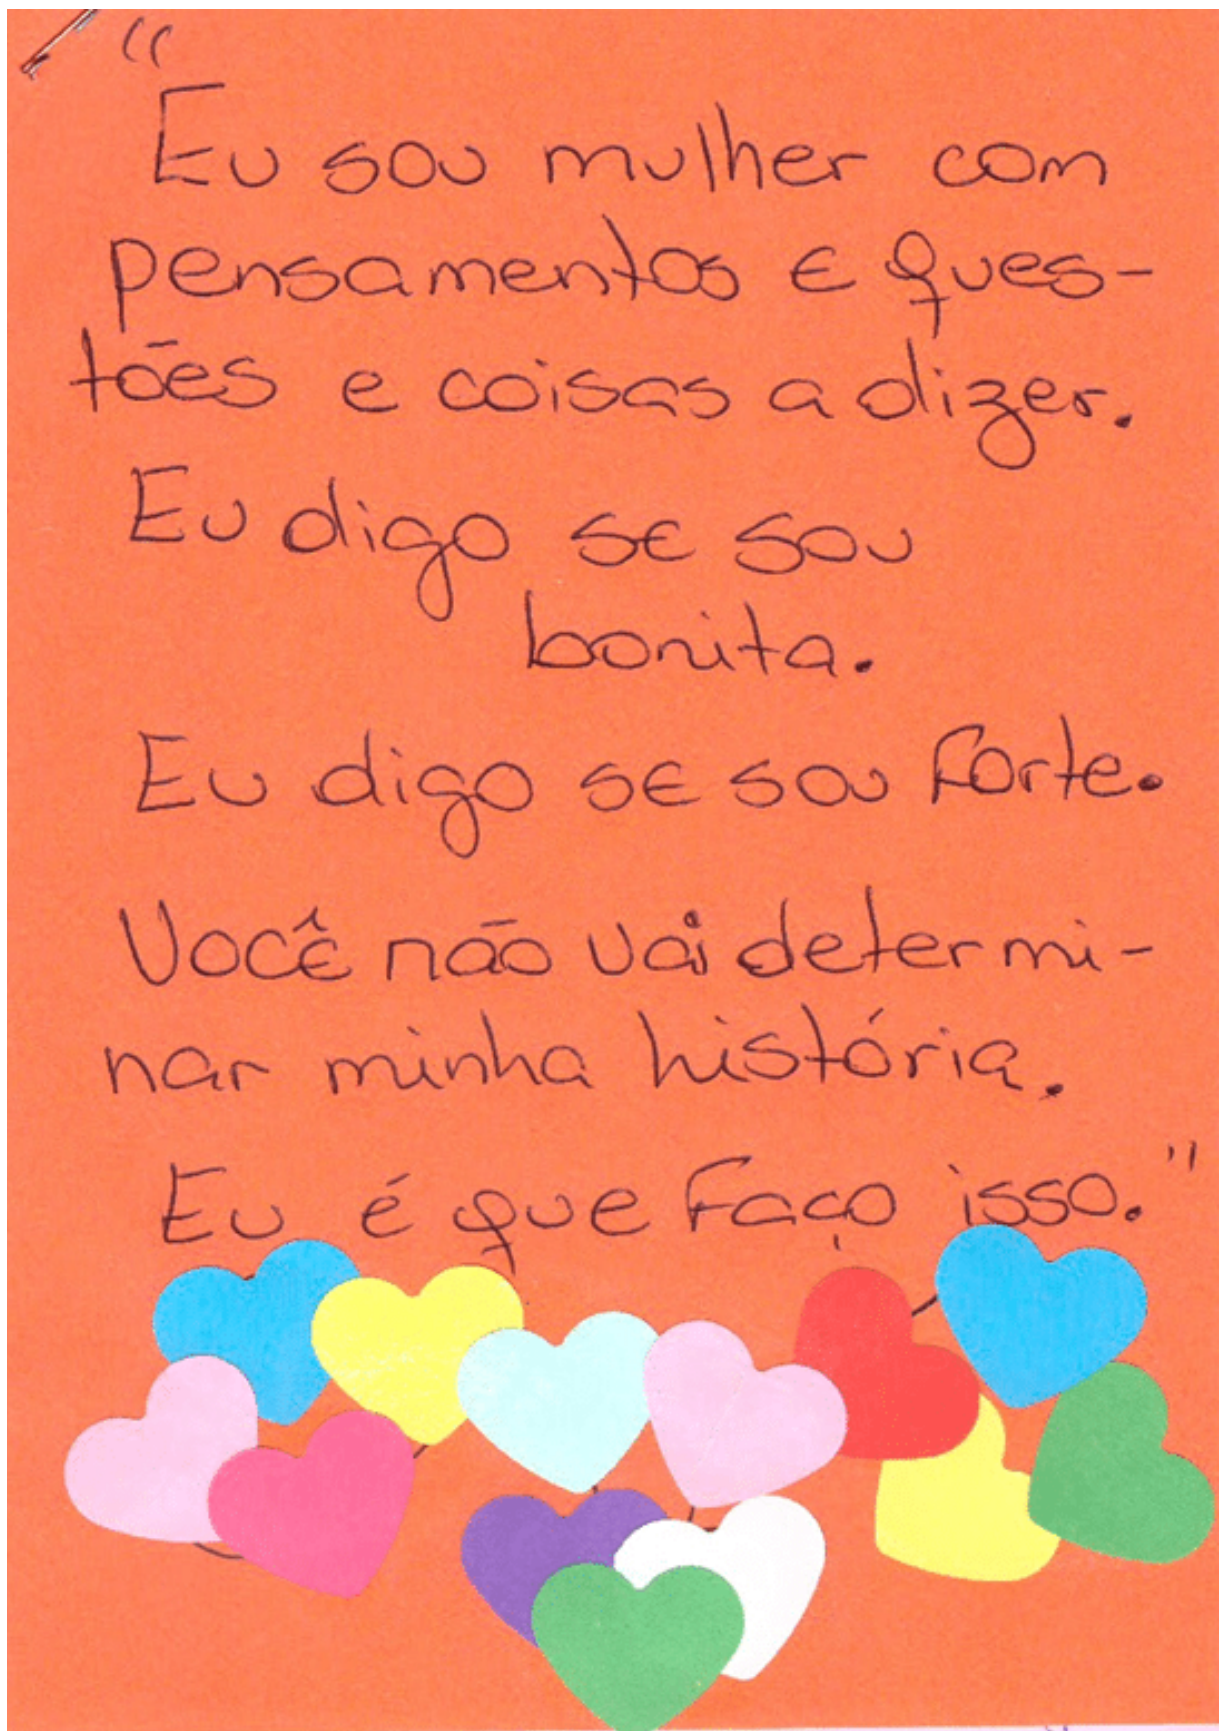 "Eu sou mulher com
pensamentos e ques-
tões e coisas a dizer.
Eu digo se sou
bonita.
Eu digo se sou forte.
Você não vai determi-
nar minha história.
Eu é que faço isso."